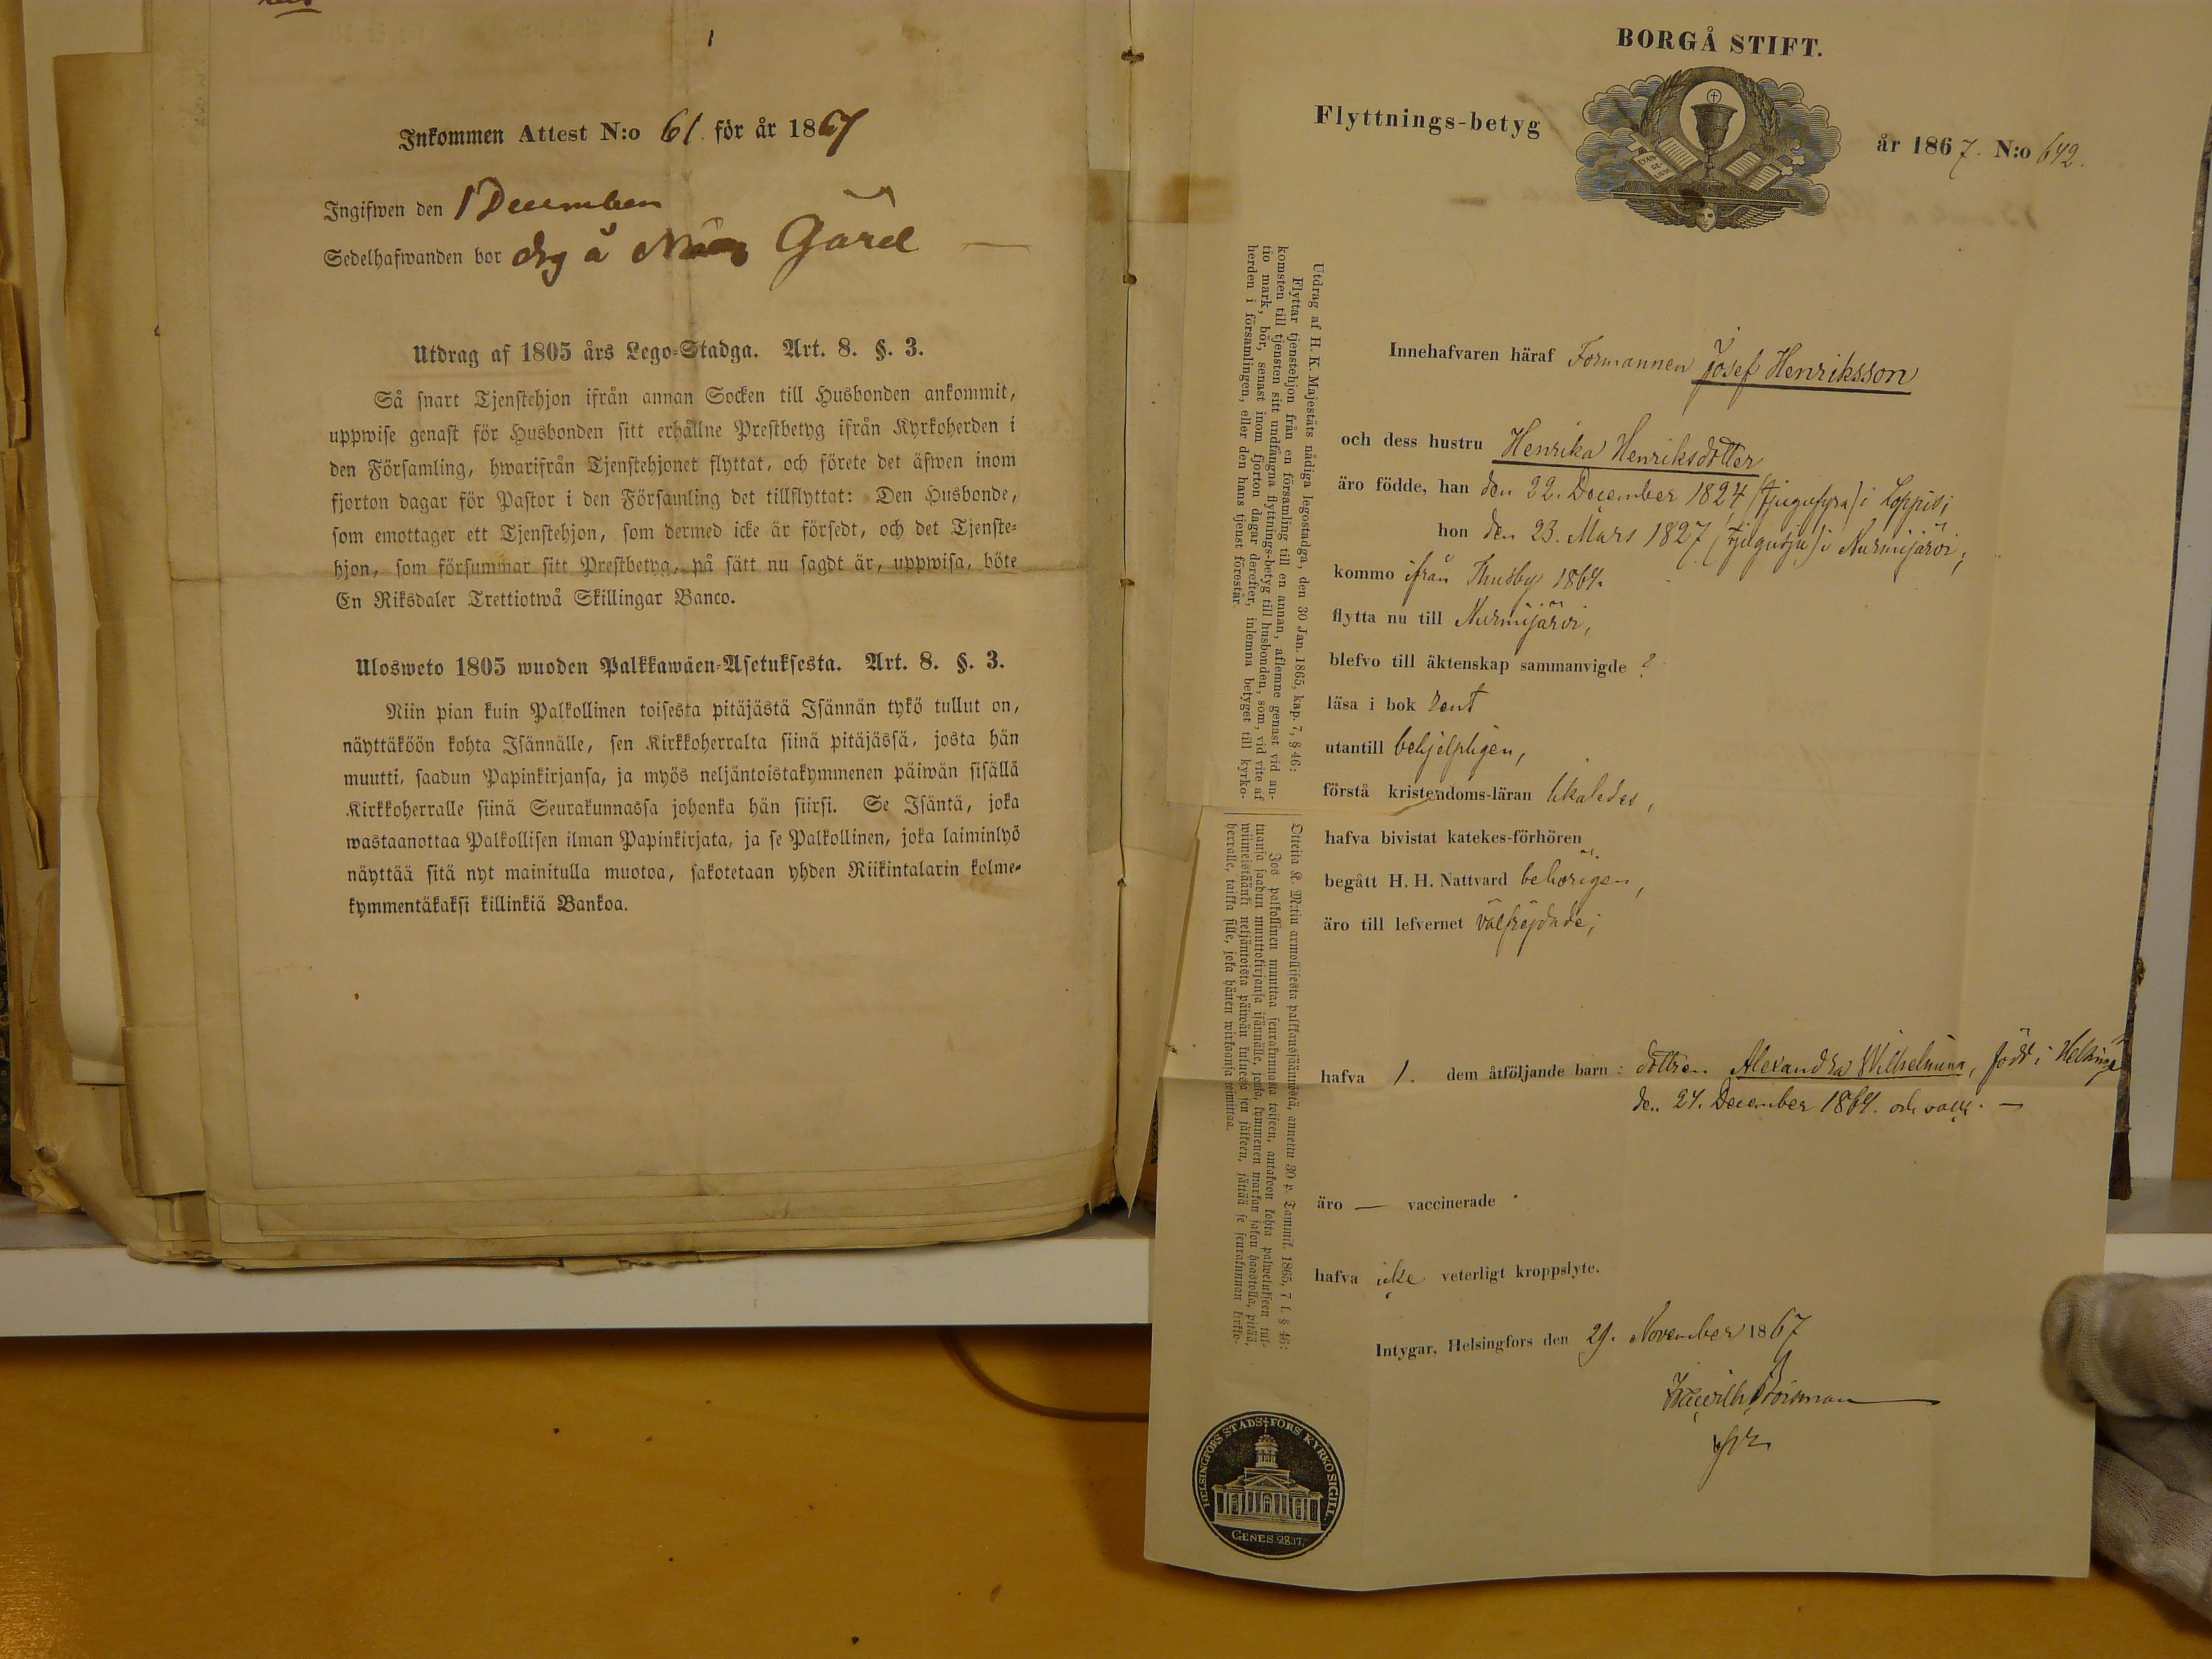 Inkommen Attest N:o 61. för år 1867
Ingifwen den 1 December
Sedelhafwanden bor å Gård
Utdrag af 1805 års Lego-Stadga. Art. 8. §. 3.
Så snart Tjenstehjon ifrån annan Socken till Husbonden ankommit,
uppwise genast för Husbonden sitt erhållne Prestbetyg ifrån Kyrkoherden i
den Församling, hwarifrån Tjenstehjonet flyttat, och förete det äfwen inom
fjorton dagar för Pastor i den Församling det tillflyttat: Den Husbonde,
som emottager ett Tjenstehjon, som dermed icke är försedt, och det Tjenste-
hjon, som försummar sitt Prestbetyg, på sätt nu sagdt är, uppwisa, böte
En Riksdaler Trettiotwå Skillingar Banco.
Ulosweto 1805 wuoden Palkkawäen-Asetuksesta. Art. 8. §. 3.
Niin pian kuin Palkollinen toisesta pitäjästä Isännän tykö tullut on,
näyttäköön kohta Isännälle, sen Kirkkoherralta siinä pitäjässä, josta hän
muutti, saadun Papinkirjansa, ja myös neljäntoistakymmenen päiwän sisällä
Kirkkoherralle siinä Seurakunnassa johonka hän siirsi. Se Isäntä, joka
wastaanottaa Palkollisen ilman Papinkirjata, ja se Palkollinen, joka laiminlyö
näyttää sitä nyt mainitulla muotoa, sakotetaan yhden Riikintalarin kolme-
kymmentäkaksi killinkiä Bankoa.
BORGÅ STIFT.
Flyttnings-betyg
EVAN-
GE-
LIUM
år 1867. N:o 642.
Utdrag af H. K. Majestäts nådiga legostadga, den 30 Jan. 1865, kap. 7, § 46:
Flyttar tjenstehjon från en församling till en annan, aflemne genast vid an-
komsten till tjensten sitt undfångna flyttnings-betyg till husbonden, som, vid vite af
tio mark, bör, senast inom fjorton dagar derefter, inlemna betyget till kyrko-
herden i församlingen, eller den hans tjenst förestår.
Otteita K. M:tin armollisesta palkkaussäännöstä, annettu 30 p. Tammik. 1865, 7 l. § 46:
Jos palkollinen muuttaa seurakunnasta toiseen, antakoon kohta palwelukseen tul-
tuansa saadun muuttokirjansa isännälle, jonka, kymmenen markan sakon haastolla, pitää,
wiimeistäänki neljäntoista päiwän kuluessa sen jälkeen, jättää se seurakunnan kirkko-
herralle, taikka sille, joka hänen wirkaansa toimittaa.
Innehafvaren häraf Formannen Josef Henriksson
och dess hustru Henrika Henriksdotter
äro födde, han den 22. December 1824 (tjugufyra) i Loppis;
hon den 23. Mars 1827 (tjugusju) i Nurmijärvi;
kommo ifrån Thusby 1864.
flytta nu till Nurmijärvi,
blefvo till äktenskap sammanvigde ?
läsa i bok rent
utantill behjelpligen,
förstå kristendoms-läran likaledes,
hafva bivistat katekes-förhören
begått H. H. Nattvard behörigen,
äro till lefvernet välfrejdade;
hafva 1. dem åtföljande barn: dottren Alexandra Wilhelmina, född i Helsinge
den 24. December 1864. och vacc. —
äro — vaccinerade
hafva icke veterligt kroppslyte.
Intygar, Helsingfors den 29. November 1867
HELSINGFORS STADS FÖRS KYRKO SIGILL.
GENES. 28.17.